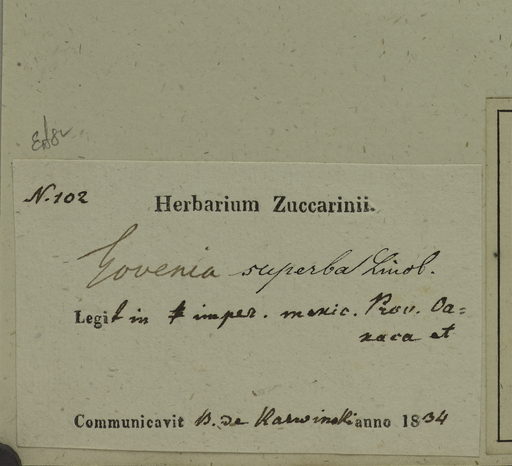 N. 102
Herbarium Zuccarinii.
Govenia superba Lindl.
Legit in imper. mexic. Prov. Oa=
xaca et
Communicavit B. de Karwinski anno 1834